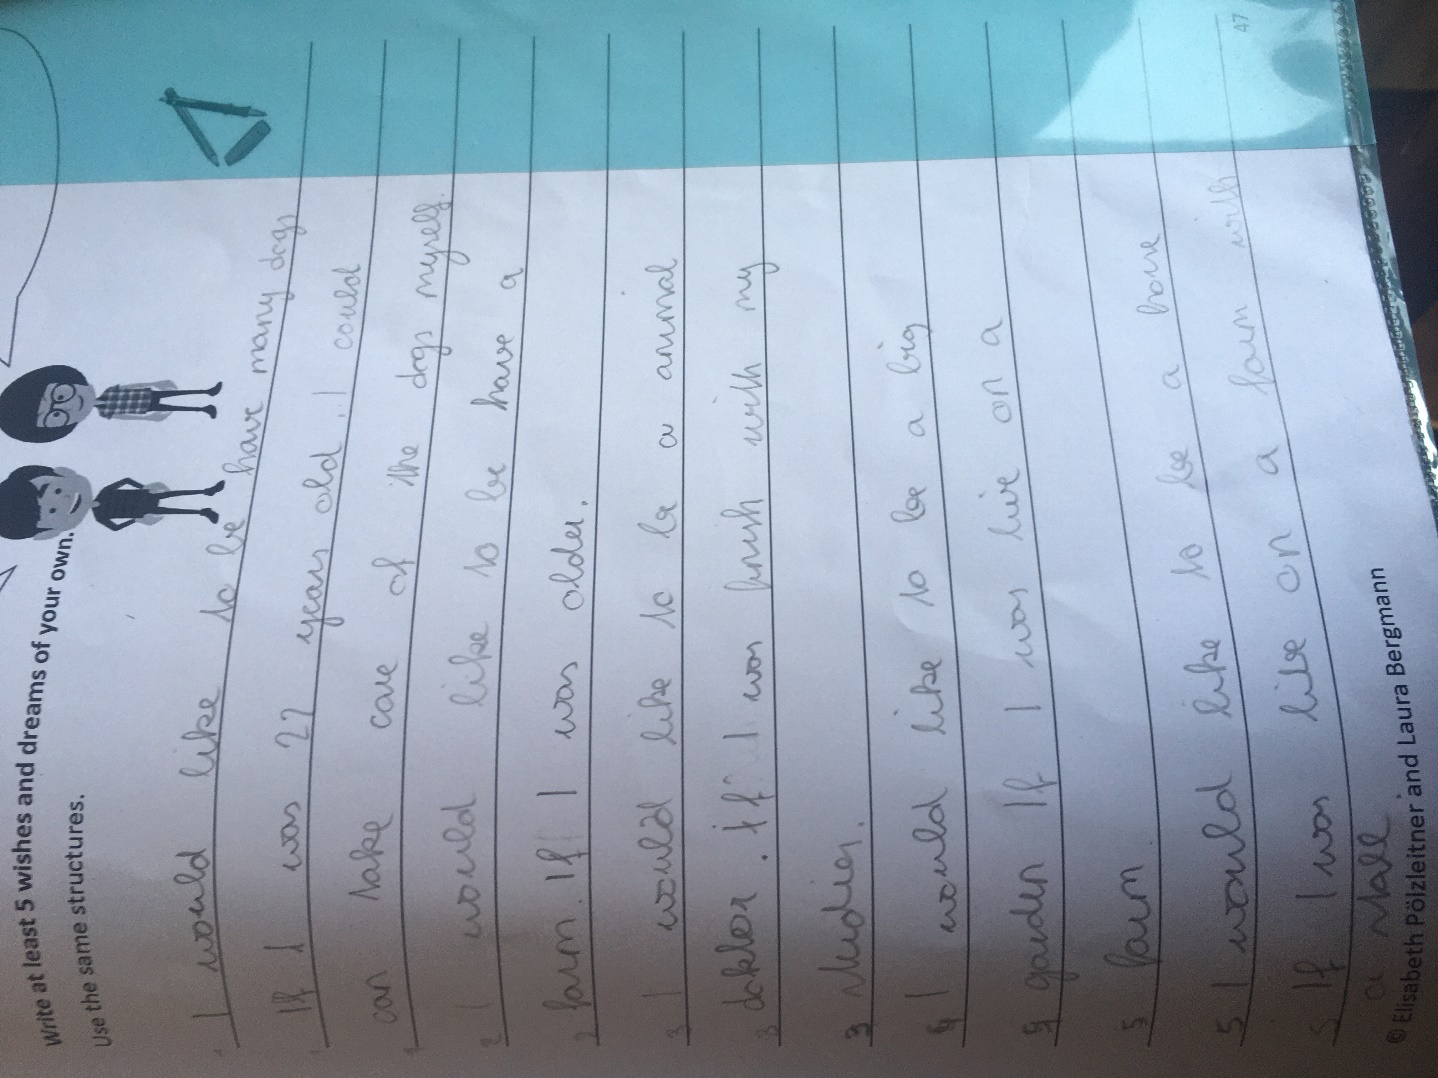 Write at least 5 wishes and dreams of your own.
Use the same structures.
1 I would like to be have many dogs
1 If I was 22 years old, I could
1 can take care of the dogs myself.
2 I would like to be have a
2 farm. If I was older.
3 I would like to be a animal
3 dokter. If I was finish with my
3 studies.
4 I would like to be a big
4 garden If I was live on a
5 farm.
5 I would like to be a horse
5 If I was live on a farm with
a stall
© Elisabeth Pölzleitner and Laura Bergmann
47